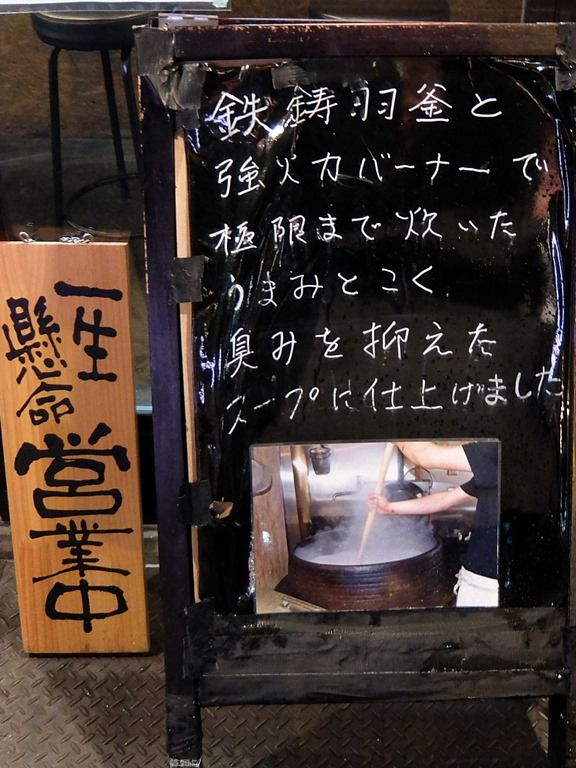 鉄鋳羽釜と
強火力バーナーで
極限まで炊いた
うまみとこく
臭みを抑えた
スープに仕上げました
一生
懸命
営業中